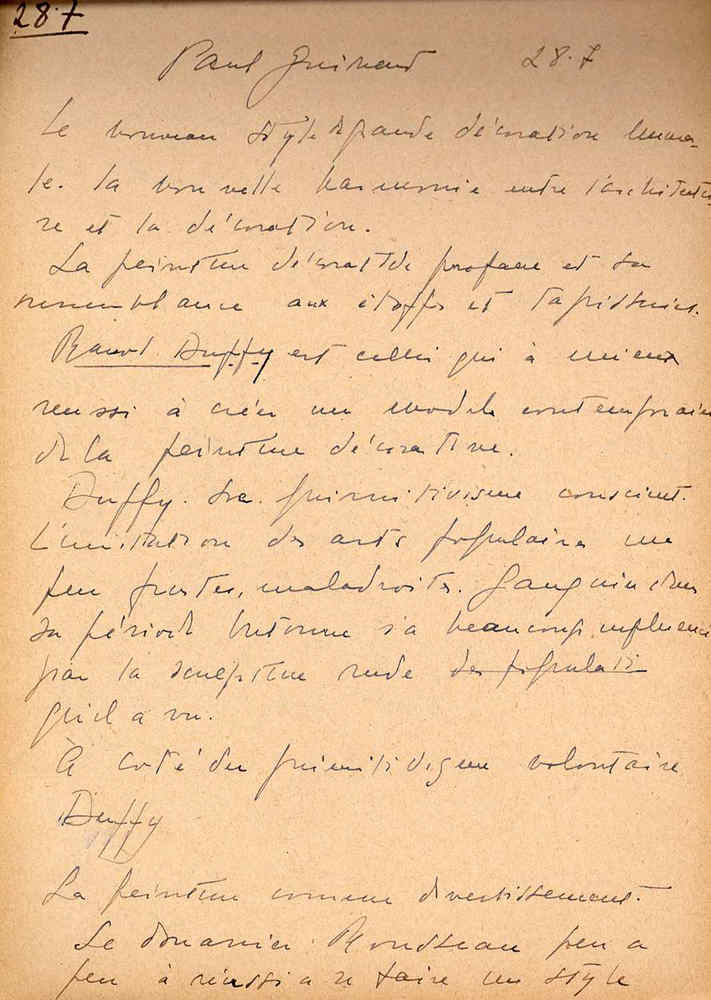 28.7
Paul Guinard 28.7
Le nouveau style de grande décoration
la nouvelle harmonie entre l'architectu-
re et la décoration.
La peinture décorative profane et sa
ressemblance aux étoffes et tapisseries.
Raoul Duffy est cellui qui à mieux
reussi à créer un modele contemporain
de la peinture décorative.
Duffy. Son primitivisme conscient.
L'imitation des arts populaires un
peu frustes, maladroits. Gauguin dans
sa période bretonne s'a beaucoup influencé
par la sculpture rude des populati
qu'il a vu.
À coté du primitivisme volontaire
Duffy
La peinture comme divertissement.
Le douanier Rousseau peu a
peu à réussi a se faire un style